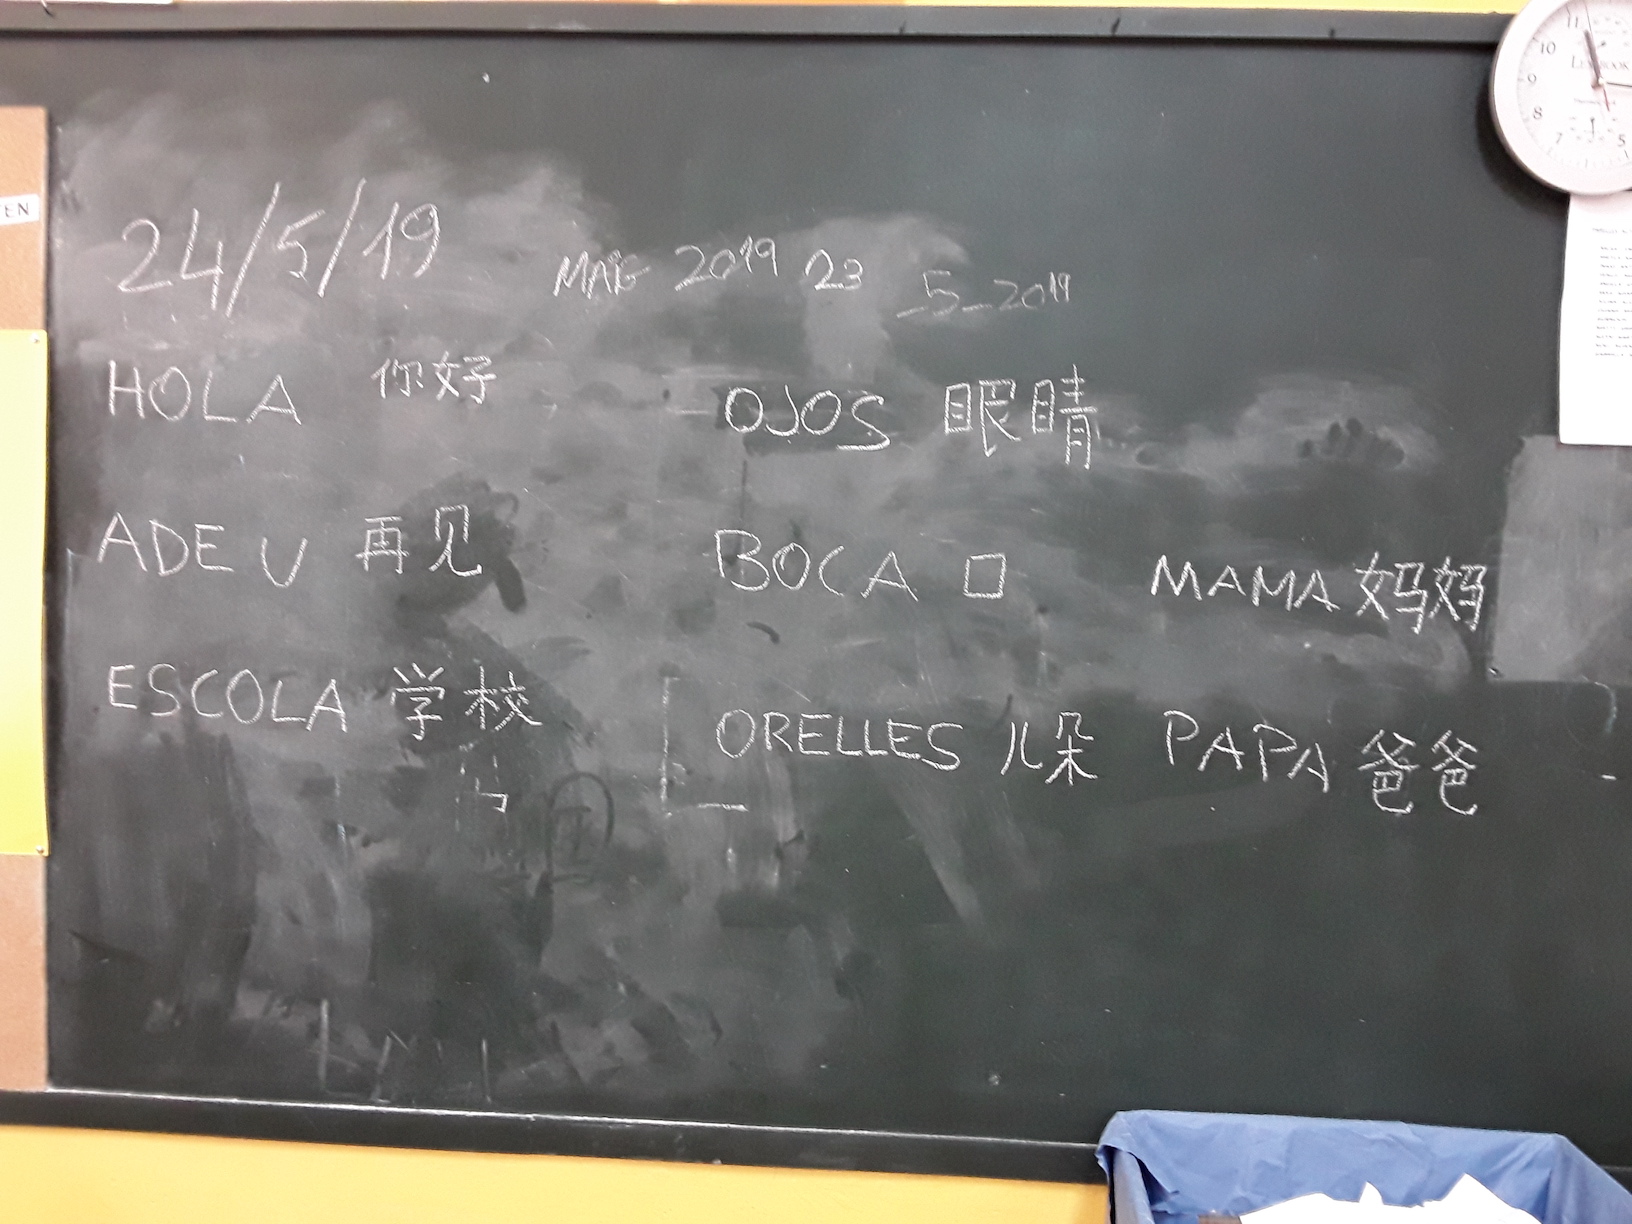 24/5/19 MAIG 2019 23 _5_2019
HOLA 你好
OJOS 眼睛
ADEU 再见
BOCA 口
MAMA 妈妈
ESCOLA 学校
ORELLES 儿朵
PAPA 爸爸
EN
11
10
9
8
7
5